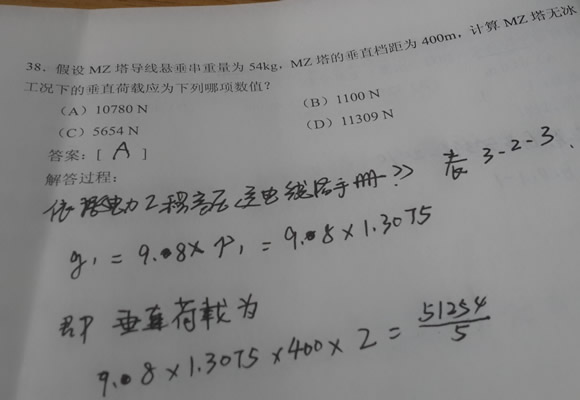 38. 假设 MZ 塔导线悬垂串重量为 54kg, MZ 塔的垂直档距为 400m, 计算 MZ 塔无冰
工况下的垂直荷载应为下列哪项数值?
（A）10780 N （B）1100 N
（C）5654 N （D）11309 N
答案: [ A ]
解答过程:
依据电力工程高压送电线路手册》> 表 3-2-3.
g₁ = 9.08 × P₁ = 9.08 × 1.3075
即 垂直荷载为
9.08 × 1.3075 × 400 × 2 = 51254/5